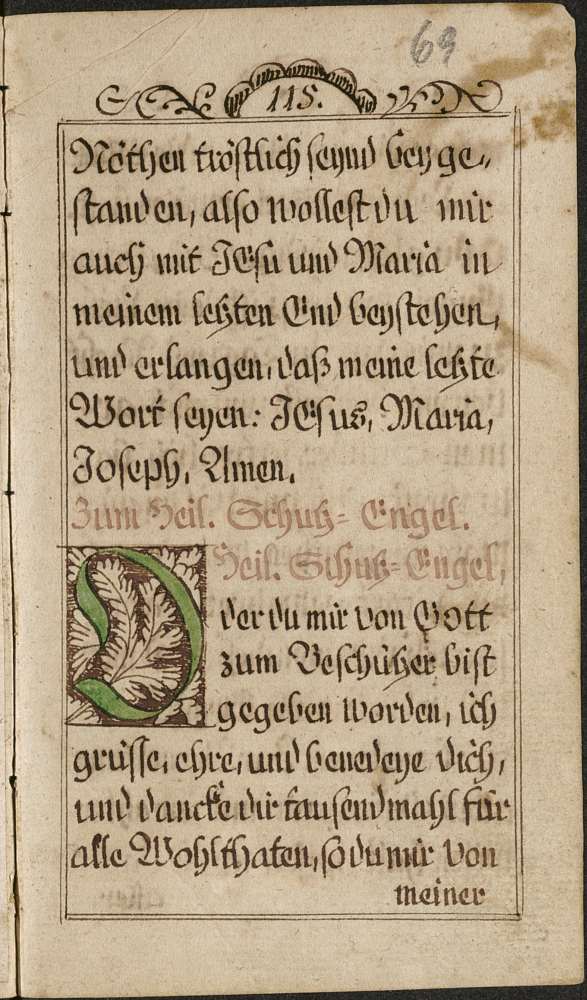 69
115.
Nöthen tröstlich seynd bey ge„
standen, also wollest du mir
auch mit JEsu und Maria in
meinem letzten End beystehen,
und erlangen, daß meine letzte
Wort seyen: JEsus, Maria,
Joseph, Amen.
Zum Heil. Schutz-Engel.
O Heil. Schutz-Engel,
der du mir von Gott
zum Beschützer bist
gegeben worden, ich
grüsse, ehre, und benedeye dich,
und dancke dir tausendmahl für
alle Wohlthaten, so du mir von
meiner